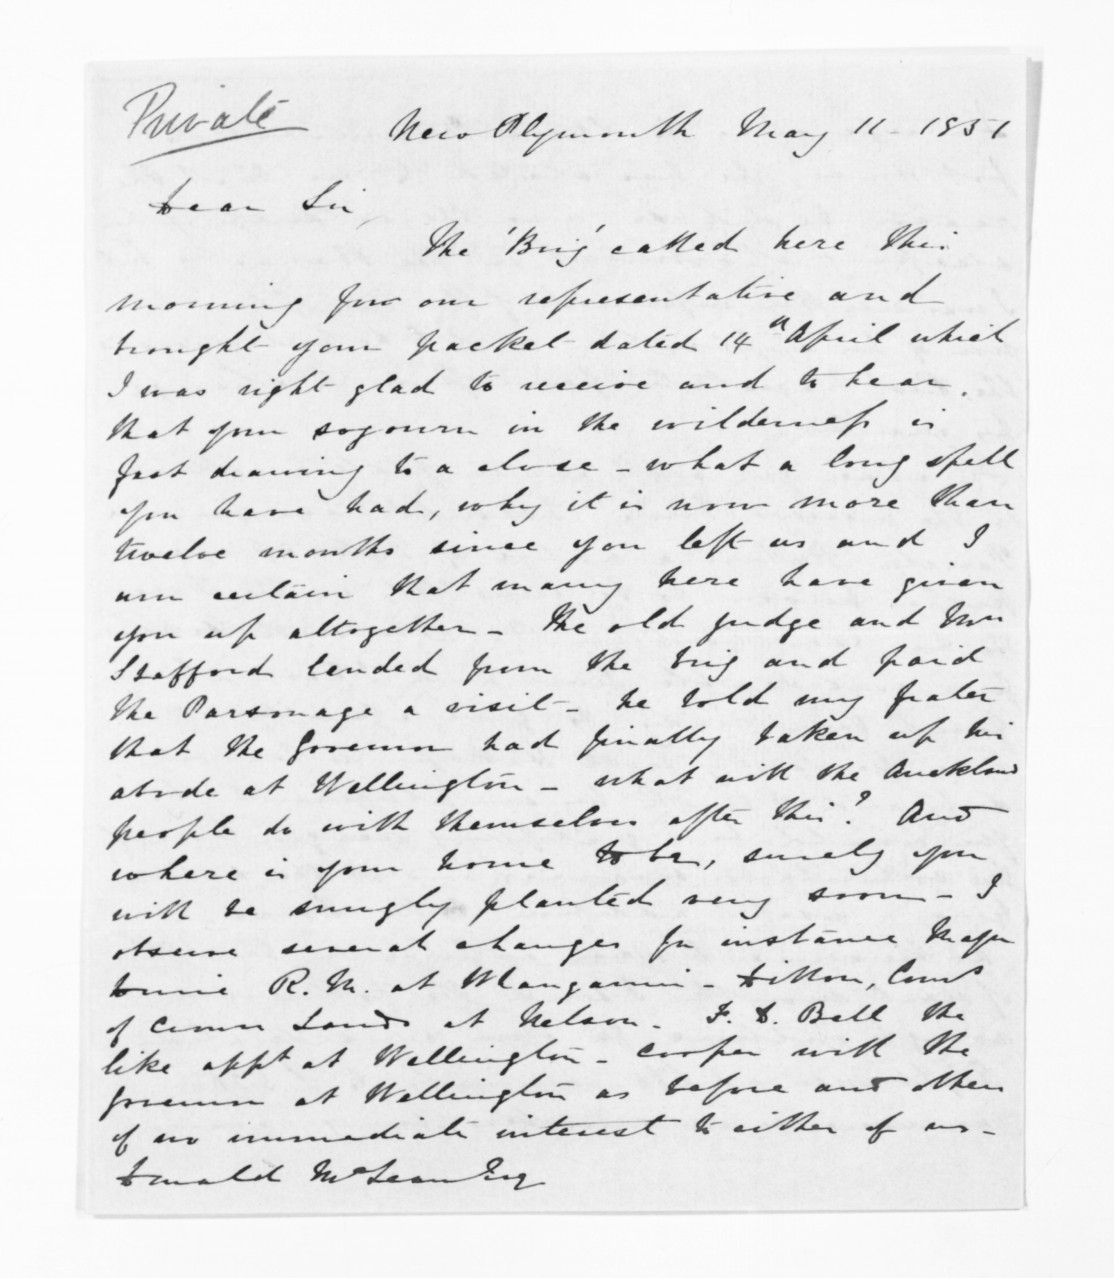 Private
New Plymouth May 11 - 1851
Dear Sir,
The 'Brig' called here this
morning for our representative and
brought your packet dated 14th April which
I was right glad to receive and to hear.
that your sogourn in the wilderness is
fast drawing to a close - what a long spell
you have had, why it is now more than
twelve months since you left us and I
am certain that many here have given
you up altogether - The old Judge and Mrs
Stafford landed from the brig and paid
the Parsonage a visit - he told my frater
that the Governor had finally taken up his
abode at Wellington - what will the Auckland
people do with themselves after this? And
where is your home to be, surely you
will be snugly planted very soon - I
observe several changes for instance Major
Durie R. M. at Wanganui - Dillon, Coms
of Crown Lands at Nelson - F. D. Bell the
like appt at Wellington - Cooper with the
Governor at Wellington as before and others
of no immediate interest to either of us -
Donald McLean Esq